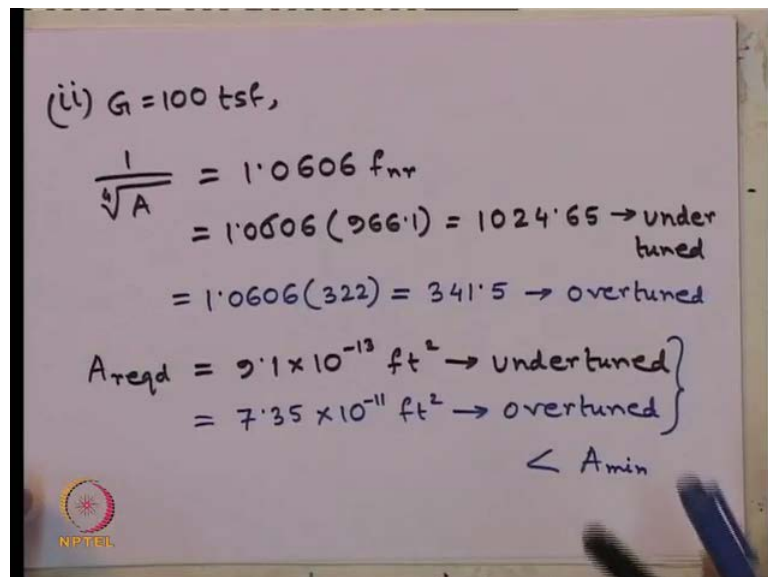 (ii) G = 100 tsf,
1/∜A = 1.0606 fnr
= 1.0606 (966.1) = 1024.65 → under tuned
= 1.0606 (322) = 341.5 → overtuned
Areqd = 9.1 × 10⁻¹³ ft² → undertuned
= 7.35 × 10⁻¹¹ ft² → overtuned
< Amin
NPTEL